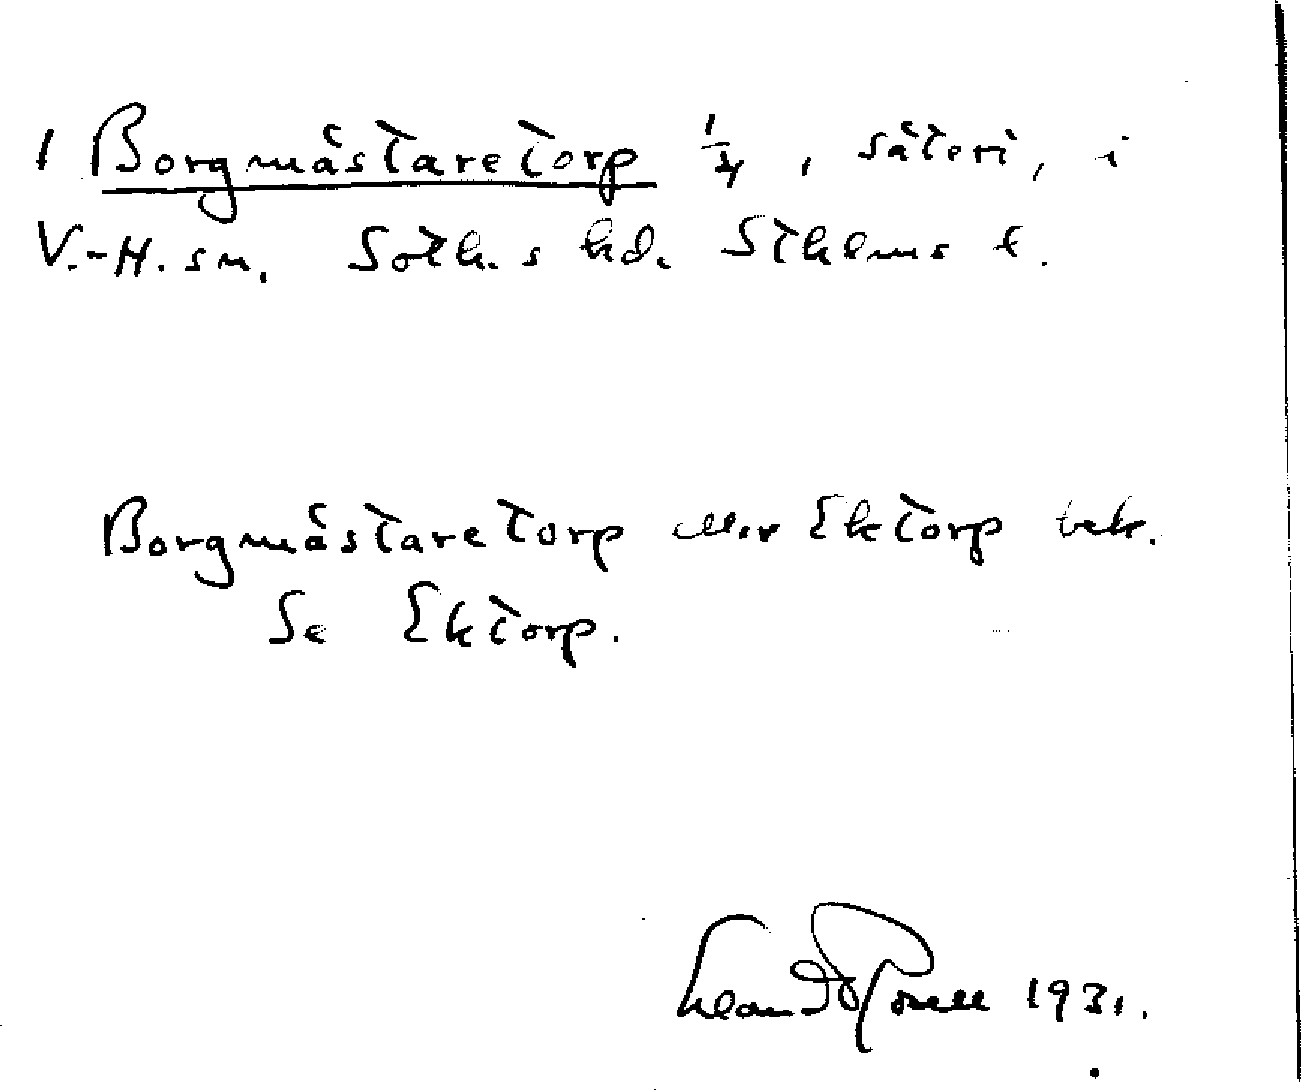 1 Borgmästaretorp 1/4, säteri, i
V.-H. sn. Sotk.s hd. Sthlms l.
Borgmästaretorp eller Ektorp bek.
Se Ektorp.
1931.